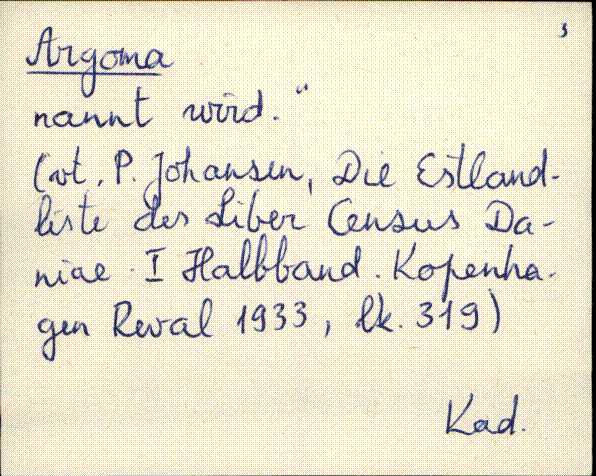 3
Argoma
nannt wird."
(vt. P. Johansen, Die Estland-
liste des Liber Census Da-
niae. I Halbband. Kopenha-
gen Reval 1933, lk. 319)
Kad.